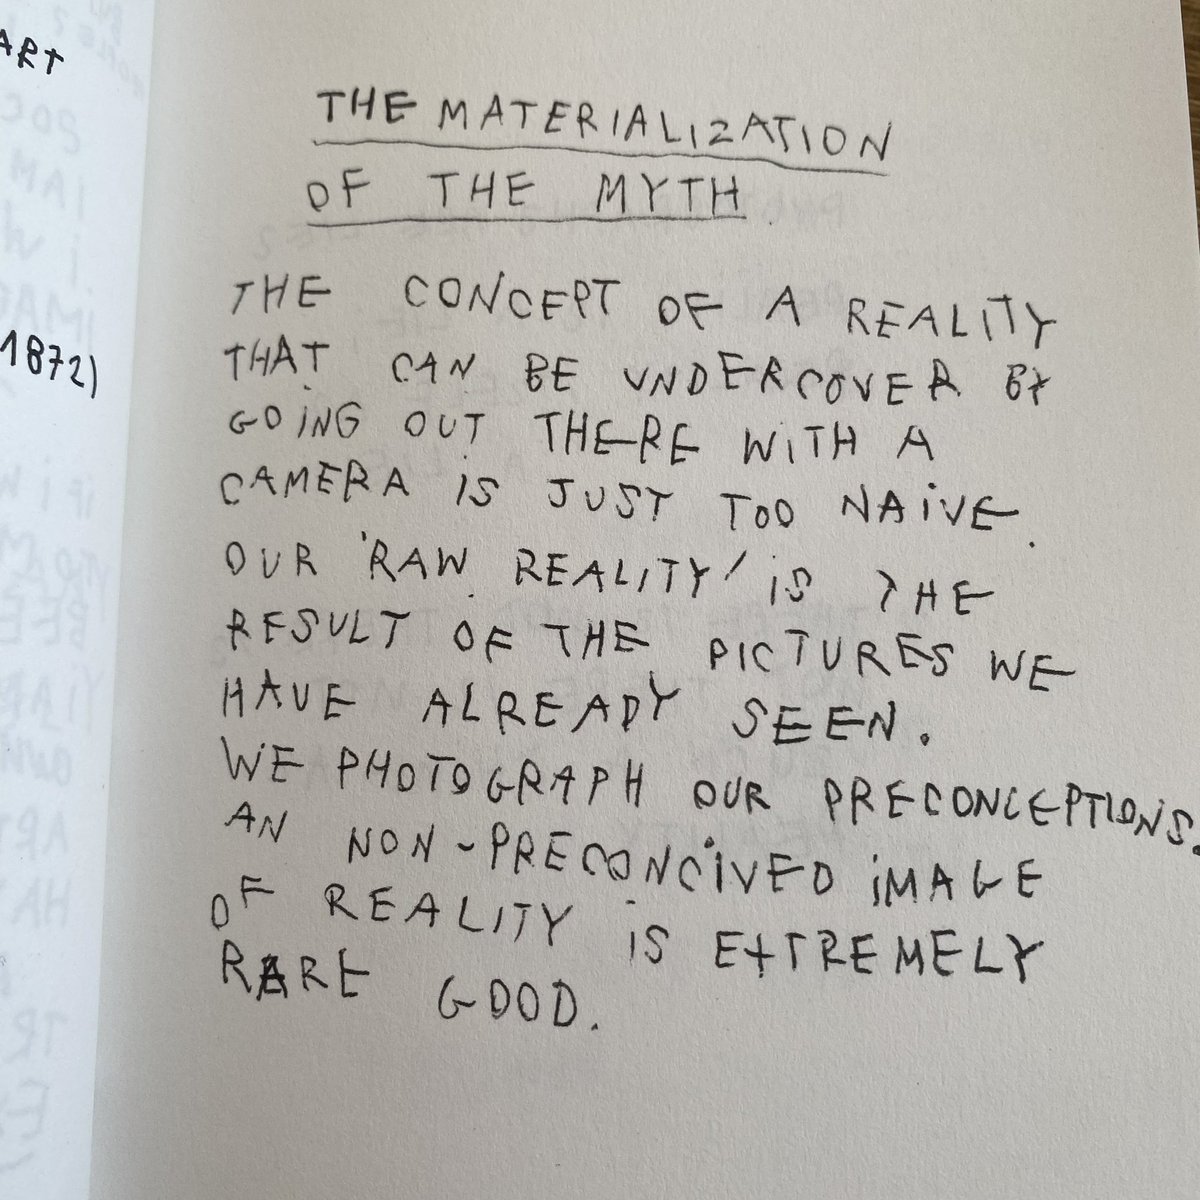 ART
1872)
THE MATERIALIZATION
OF THE MYTH
THE CONCEPT OF A REALITY
THAT CAN BE UNDERCOVER BY
GOING OUT THERE WITH A
CAMERA iS JUST TOO NAiVE.
OUR 'RAW REALITY' iS THE
RESULT OF THE PICTURES WE
HAVE ALREADY SEEN.
WE PHOTOGRAPH OUR PRECONCEPTIONS.
AN NON-PRECONCiVED iMAGE
OF REALITY iS EXTREMELY
RARE GOOD.